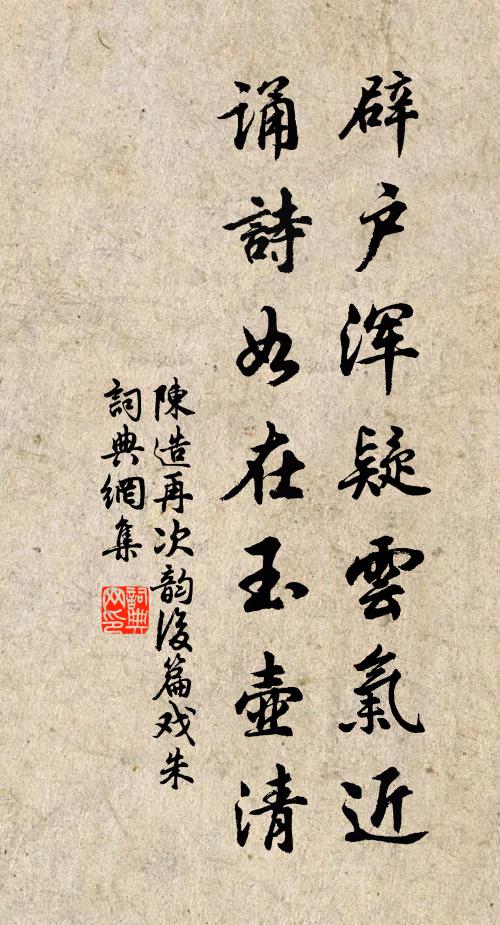 辟户浑疑雲氣近
诵詩如在玉壺清
陳造再次韵後篇戏朱
詞典網集
詞典
网印